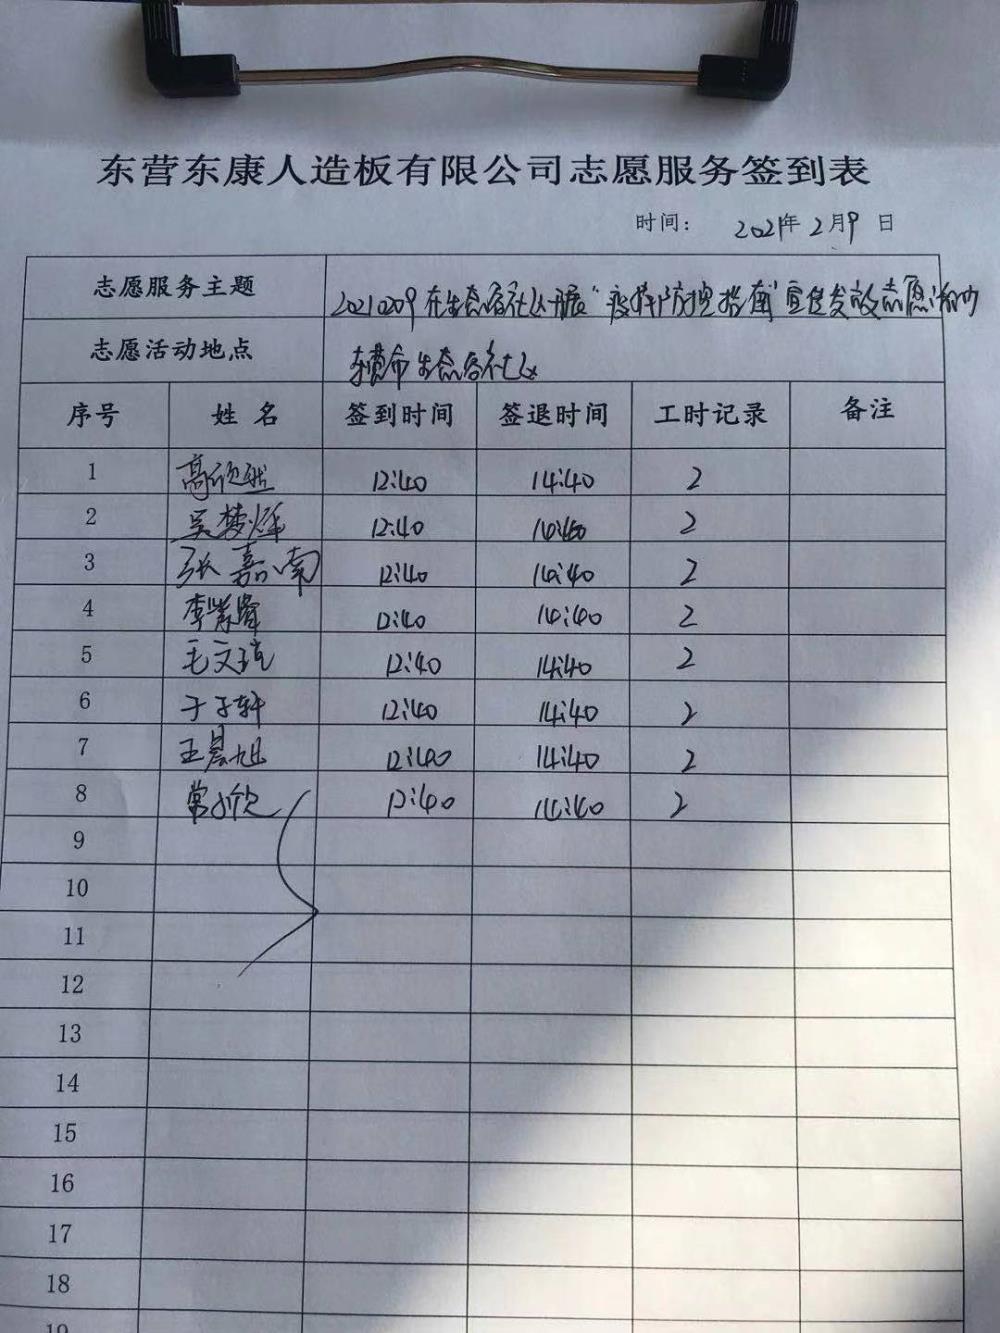 东营东康人造板有限公司志愿服务签到表
时间: 2021年2月9日
志愿服务主题 20210209在生态谷社区开展"疫情防控指南"宣传发放志愿活动
志愿活动地点 东营市生态谷社区
序号 姓名 签到时间 签退时间 工时记录 备注
1 高欣然 12:40 14:40 2
2 吴梦烊 12:40 14:40 2
3 张嘉南 12:40 14:40 2
4 李紫睿 12:40 14:40 2
5 毛文瑄 12:40 14:40 2
6 于子轩 12:40 14:40 2
7 王晨旭 12:40 14:40 2
8 常 欣 12:40 14:40 2
9
10
11
12
13
14
15
16
17
18
19